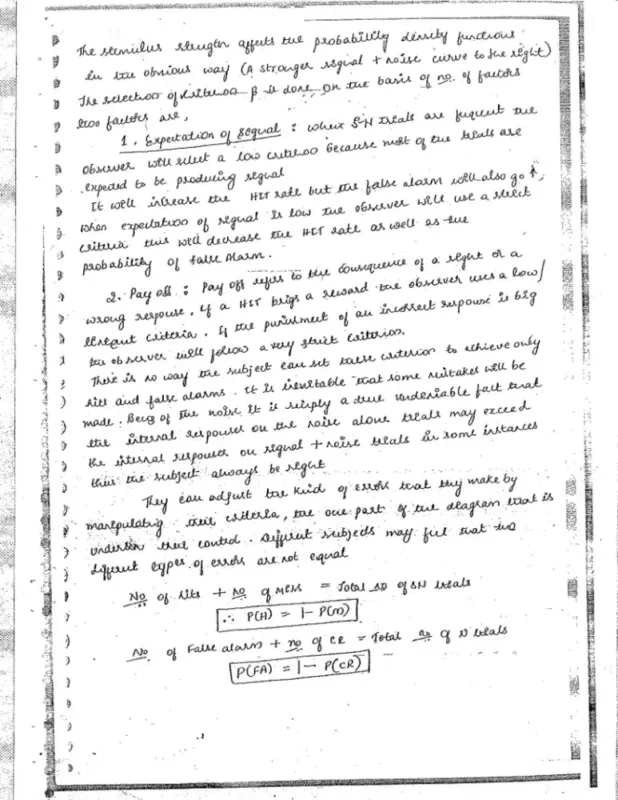 The stimulus strength affects the probability density functions
in the obvious way (A stronger signal + noise curve to the right)
The selection of criterion β is done on the basis of no. of factors
two factors are,
1. Expectation of signal : where S+N trials are frequent the
observer will select a low criterion because most of the trials are
expected to be producing signal
It will increase the HIT rate but the false alarm will also go ↑,
when expectation of signal is low the observer will use a strict
criteria this will decrease the HIT rate as well as the
probability of false Alarm.
2. Pay off : Pay off refers to the consequence of a right or a
wrong response, if a HIT brigs a reward the observer uses a low/
criteria. If the punishment of an incorrect response is big
the observer will follow a very strict criterion.
There is no way the subject can set these criterion to achieve only
hits and false alarms. It is inevitable that some mistakes will be
made. Bcz of the noise. It is simply a true undeniable fact that
the internal responses on the noise alone trials may exceed
the internal responses on signal + noise trials in some instances
thus the subject always be right
They can adjust the kind of errors that they make by
manipulating their criteria, the one part of the diagram that is
under their control. Different subjects may feel that two
different types of errors are not equal
No of hits + no of miss = Total no of SN trials
∴ P(H) = 1 - P(m)
No of False alarm + no of CR = Total no of N trials
P(FA) = 1 - P(CR)